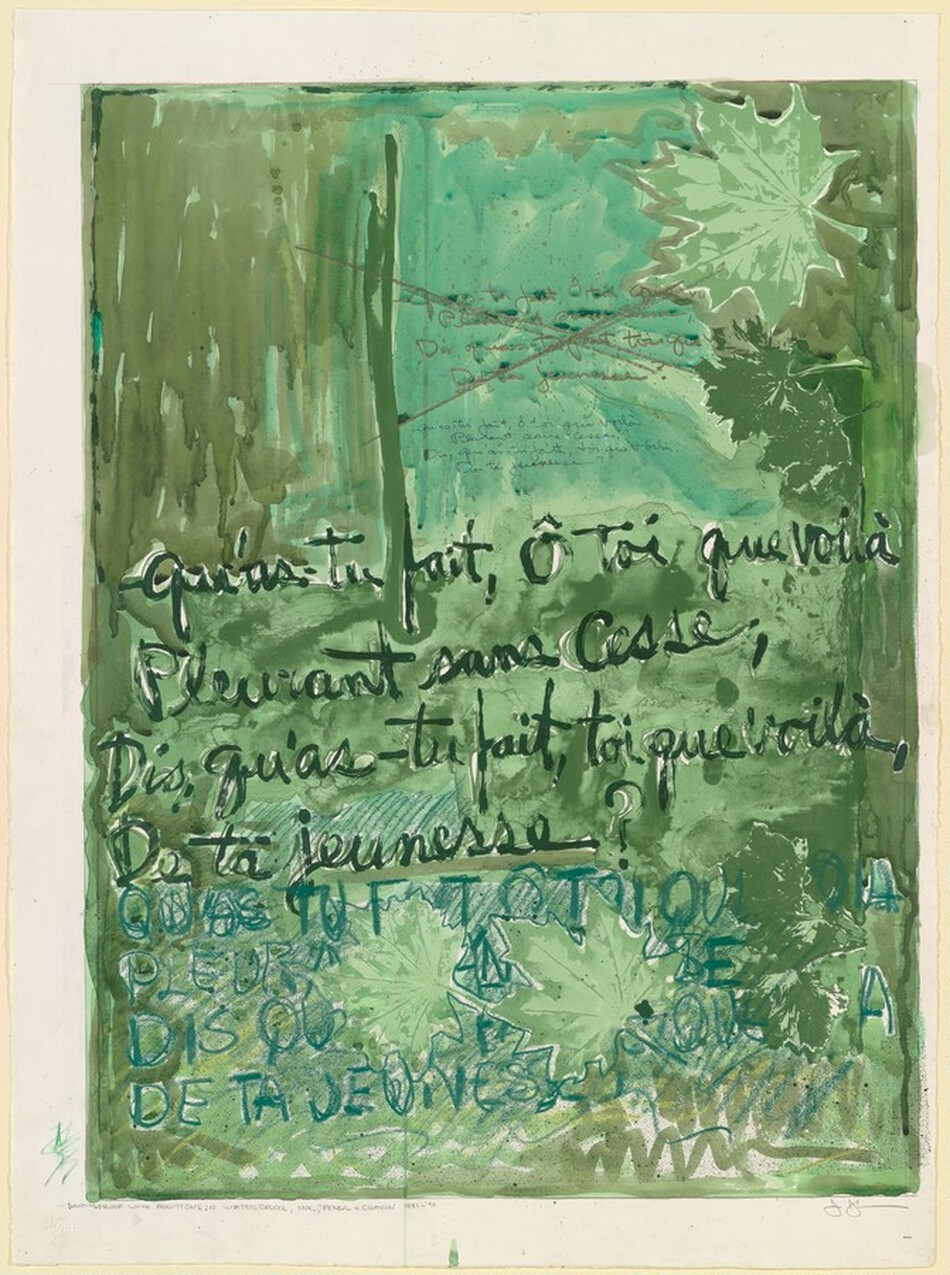 qu'as-tu fait, Ô toi que voilà
Pleurant
Dis, qu'as-tu fait, toi que
De ta jeunesse ?
qu'as tu fait, Ô toi que voilà
Pleurant sans cesse,
Dis, qu'as-tu fait, toi que voilà,
De ta jeunesse
qu'as-tu fait, Ô Toi que voilà
Pleurant sans Cesse,
Dis, qu'as-tu fait, toi que voilà,
De ta jeunesse ?
QU'AS TU FAIT Ô TOI QU
PLEUR
DIS QU QUE A
DE TA JEUNESSE
PROOF WITH ADDITIONS IN WATERCOLOR, INK, PENCIL & CRAYON